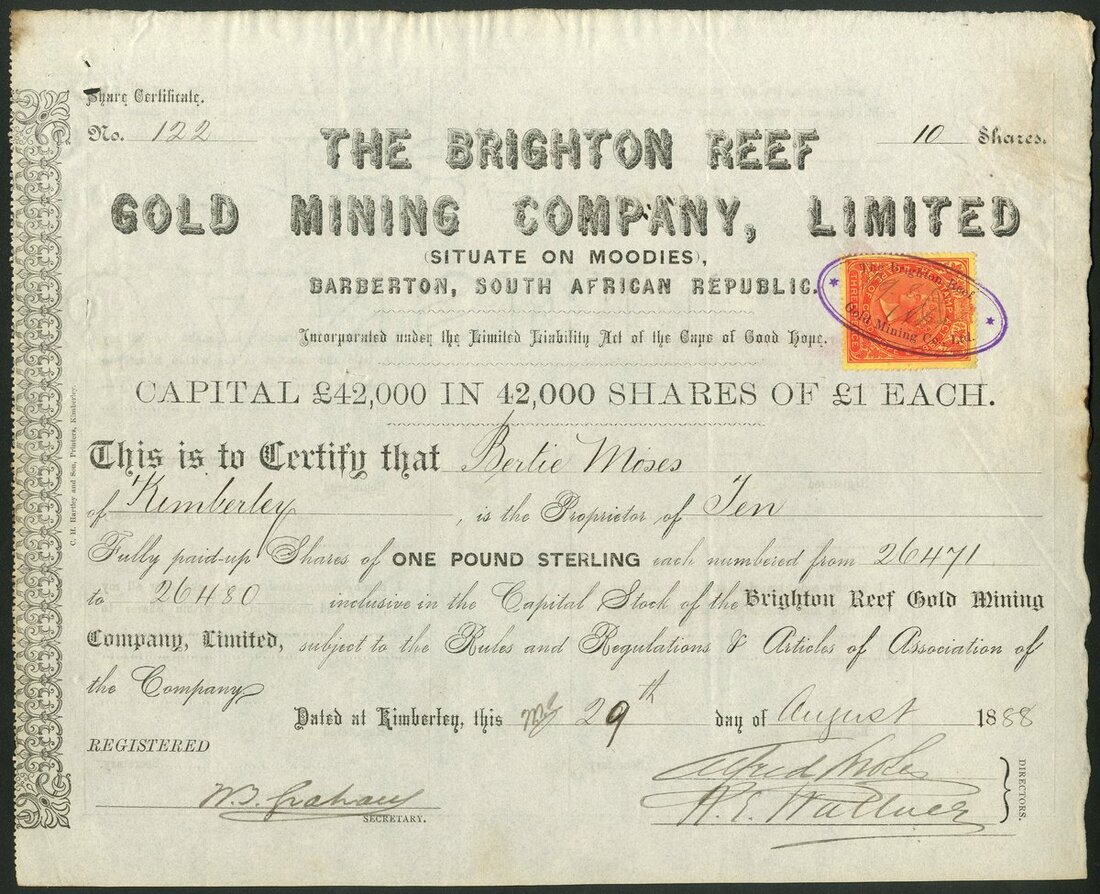 Share Certificate.
No. 122
10 Shares.
THE BRIGHTON REEF
GOLD MINING COMPANY, LIMITED
(SITUATE ON MOODIES),
BARBERTON, SOUTH AFRICAN REPUBLIC.
The Brighton Reef
Gold Mining Co., Ltd.
Incorporated under the Limited Liability Act of the Cape of Good Hope.
CAPITAL £42,000 IN 42,000 SHARES OF £1 EACH.
This is to Certify that Bertie Moses
of Kimberley, is the Proprietor of Ten
Fully paid-up Shares of ONE POUND STERLING each numbered from 26471
to 26480 inclusive in the Capital Stock of the Brighton Reef Gold Mining
Company, Limited, subject to the Rules and Regulations & Articles of Association of
the Company
Dated at Kimberley, this 29th day of August 1888
REGISTERED
SECRETARY.
Alfred
DIRECTORS.
C. H. Hartley and Son, Printers, Kimberley.